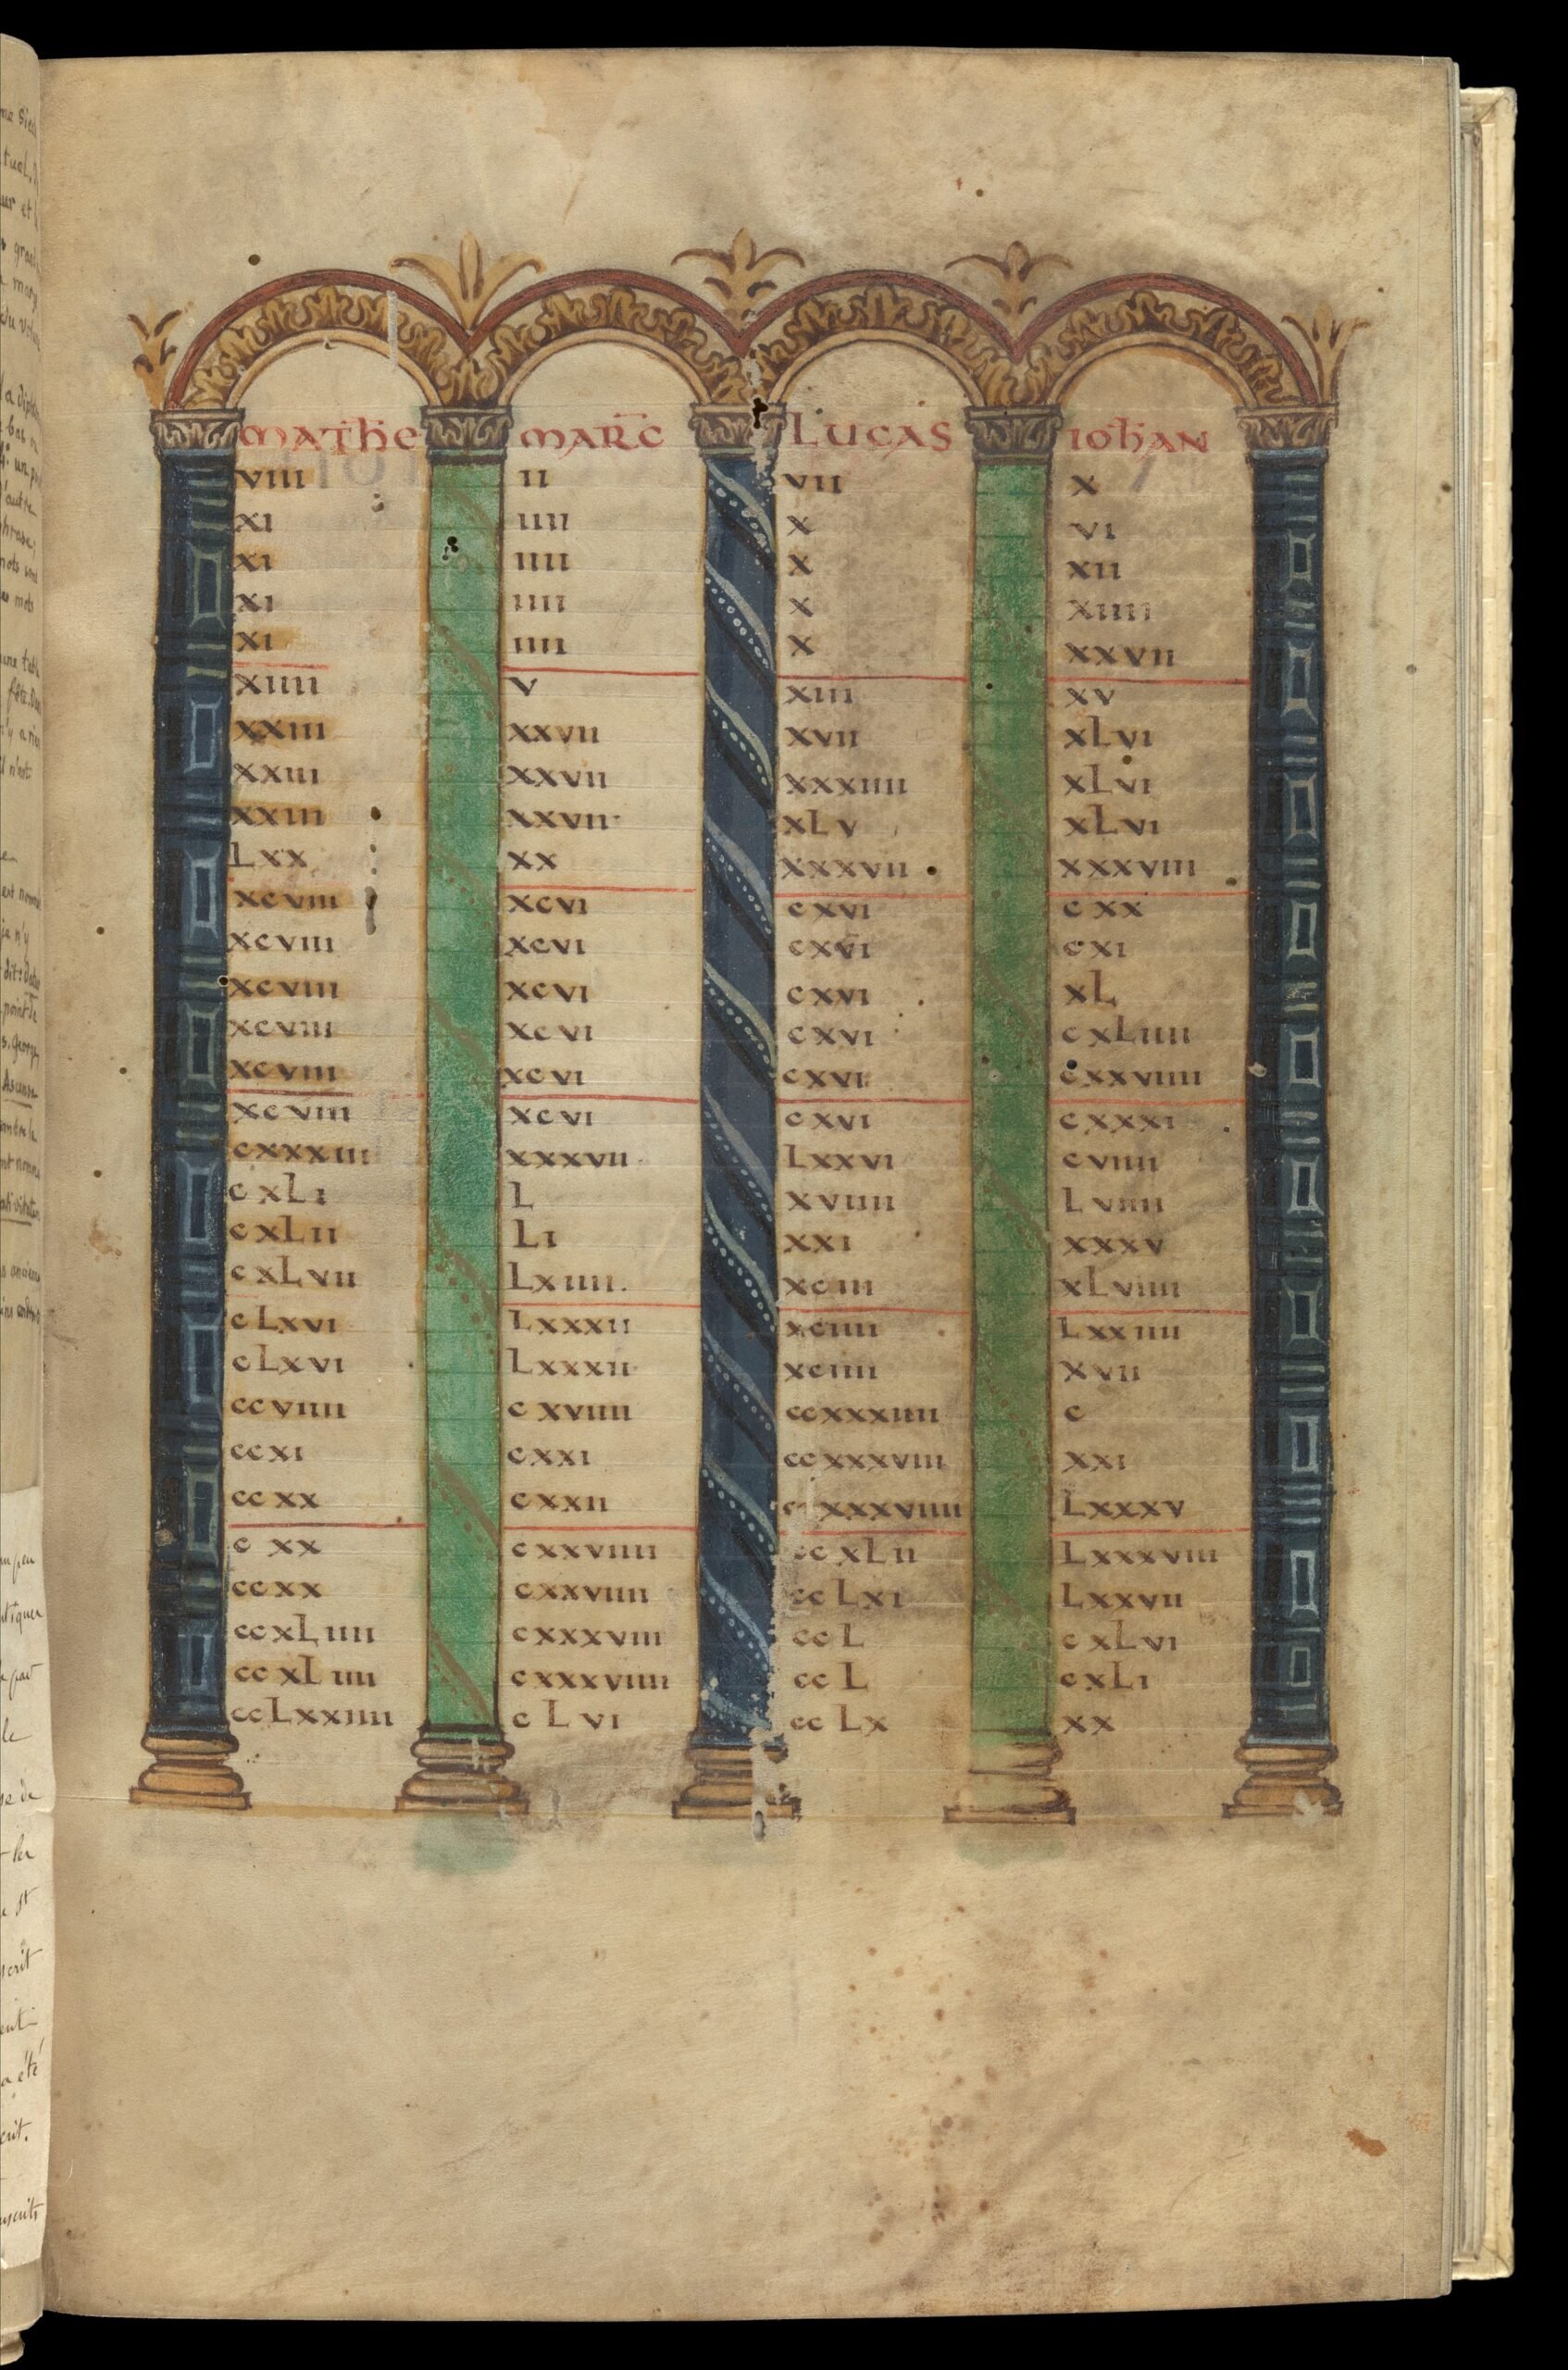 MATHE MARC̄ LUCAS IOHAN
VIII II VII X
XI IIII X VI
XI IIII X XII
XI IIII X XIIII
XI IIII X XXVII
XIIII V XIII XV
XXIII XXVII XVII XLVI
XXIII XXVII XXXIIII XLVI
XXIII XXVII XLV XLVI
LXX XX XXXVII XXXVIII
XCVIII XCVI CXVI CXX
XCVIII XCVI CXVI CXI
XCVIII XCVI CXVI XL
XCVIII XCVI CXVI CXLIIII
XCVIII XCVI CXVI CXXVIIII
XCVIII XCVI CXVI CXXXI
CXXXIII XXXVII LXXVI CVIIII
CXLI L XVIIII LVIIII
CXLII LI XXI XXXV
CXLVII LXIIII XCIII XLVIIII
CLXVI LXXXII XCIIII LXXIIII
CLXVI LXXXII XCIIII XVII
CCVIIII CXVIIII CCXXXIIII C
CCXI CXXI CCXXXVIII XXI
CCXX CXXII LXXXV
C XX CXXVIIII CCXLII LXXXVIII
CCXX CXXVIIII CCLXI LXXVII
CCXLIIII CXXXVIII CCL CXLVI
CCXLIIII CXXXVIIII CCL CXLI
CCLXXIIII CLVI CCLX XX